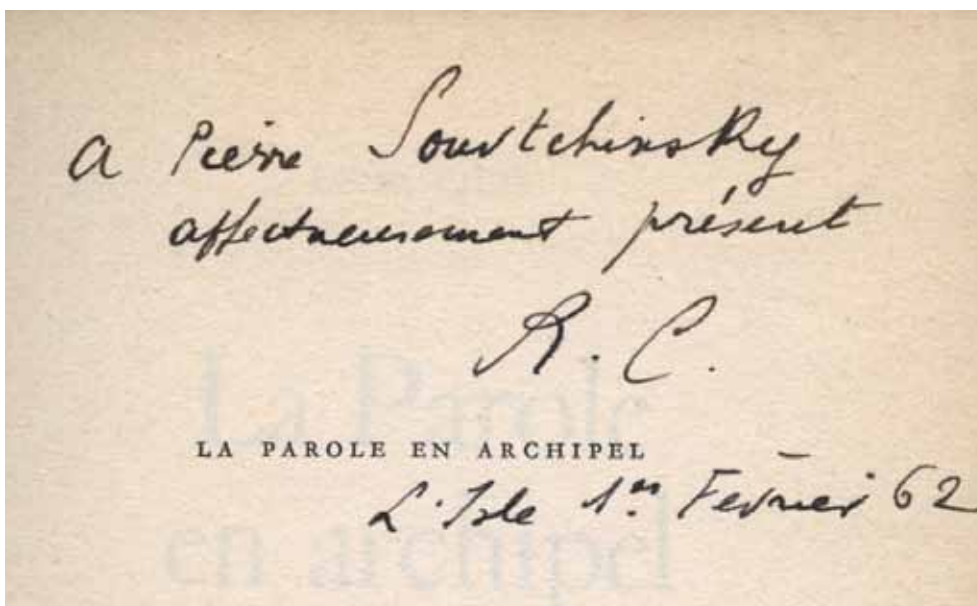 A Pierre Souvtchinsky
affectueusement présent
R. C.
LA PAROLE EN ARCHIPEL
L'Isle 1er Février 62
La Parole
en archipel